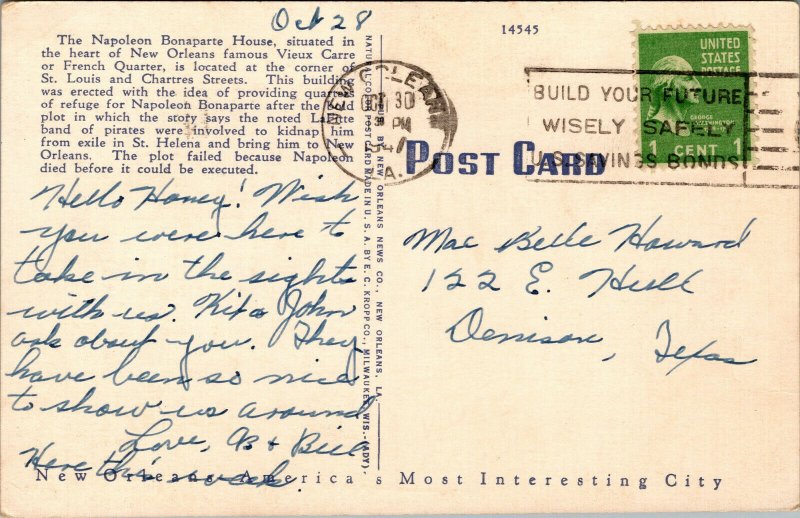 Oct 28
14545
The Napoleon Bonaparte House, situated in
the heart of New Orleans famous Vieux Carre
or French Quarter, is located at the corner of
St. Louis and Chartres Streets. This building
was erected with the idea of providing quarters
of refuge for Napoleon Bonaparte after the
plot in which the story says the noted Lafitte
band of pirates were involved to kidnap him
from exile in St. Helena and bring him to New
Orleans. The plot failed because Napoleon
died before it could be executed.
Hello Honey! Wish
you were here to
take in the sights
with us. Kit & John
ask about you. They
have been so nice
to show us around
Love, B & Bill
Here this week.
NATURAL COLOR POST CARD MADE IN U. S. A. BY E. C. KROPP CO., MILWAUKEE, WIS.
PUB. BY NEW ORLEANS NEWS CO., NEW ORLEANS, LA.
NEW ORLEANS
OCT 30
PM
LA.
POST CARD
BUILD YOUR FUTURE
WISELY SAFELY
U.S. SAVINGS BONDS
UNITED
STATES
POSTAGE
GEORGE
WASHINGTON
1 CENT 1
Mae Belle Howard
122 E. Hull
Denison, Texas
New Orleans America's Most Interesting City